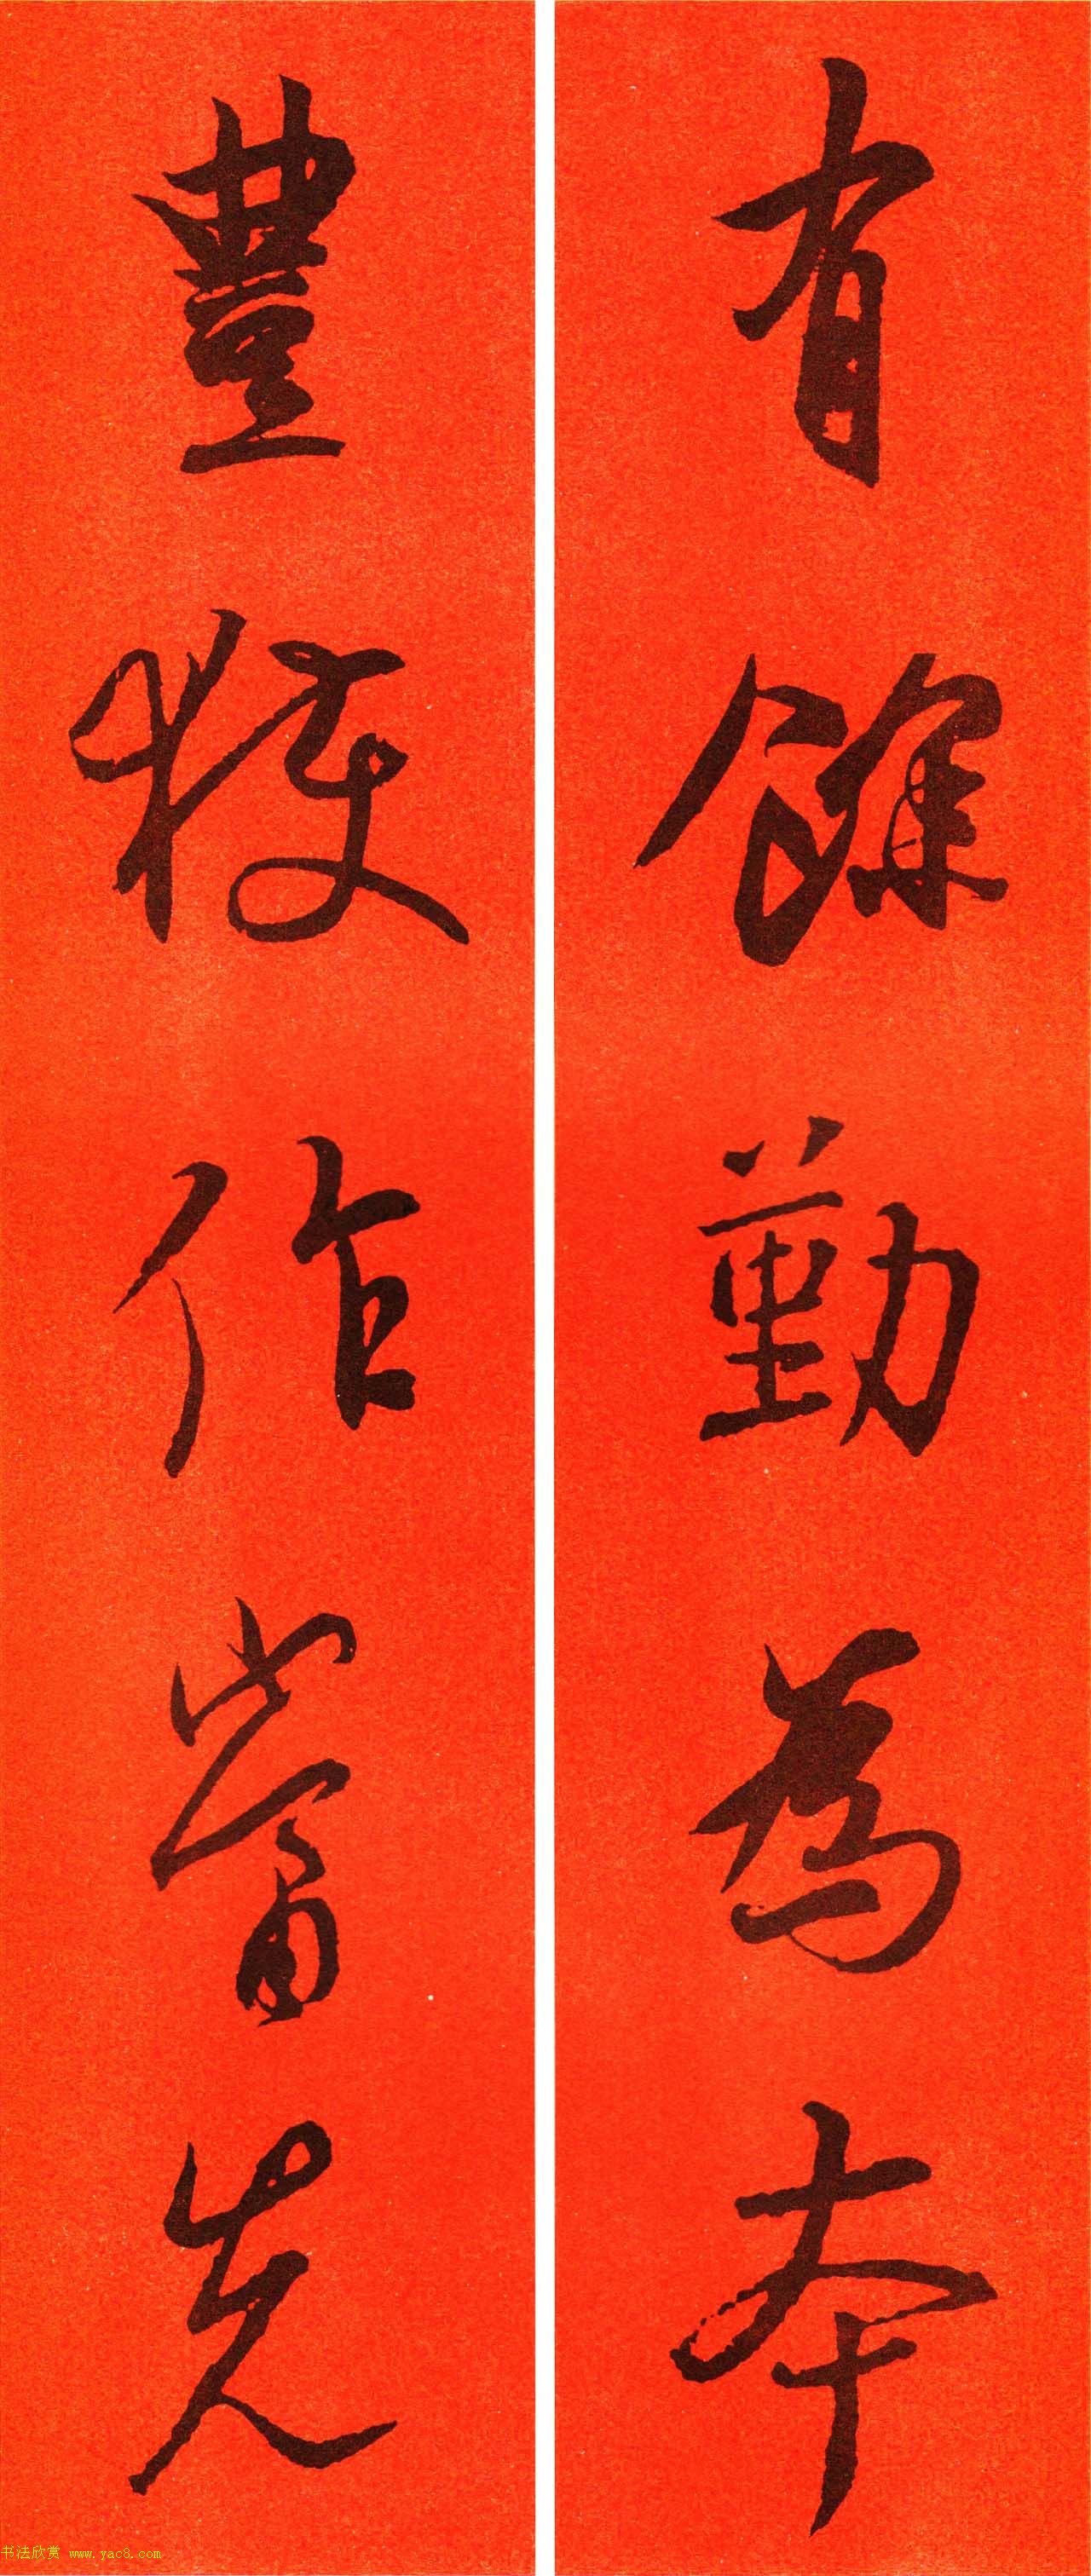 有餘勤為本
豐穫作當先
书法欣赏 www.yac8.com